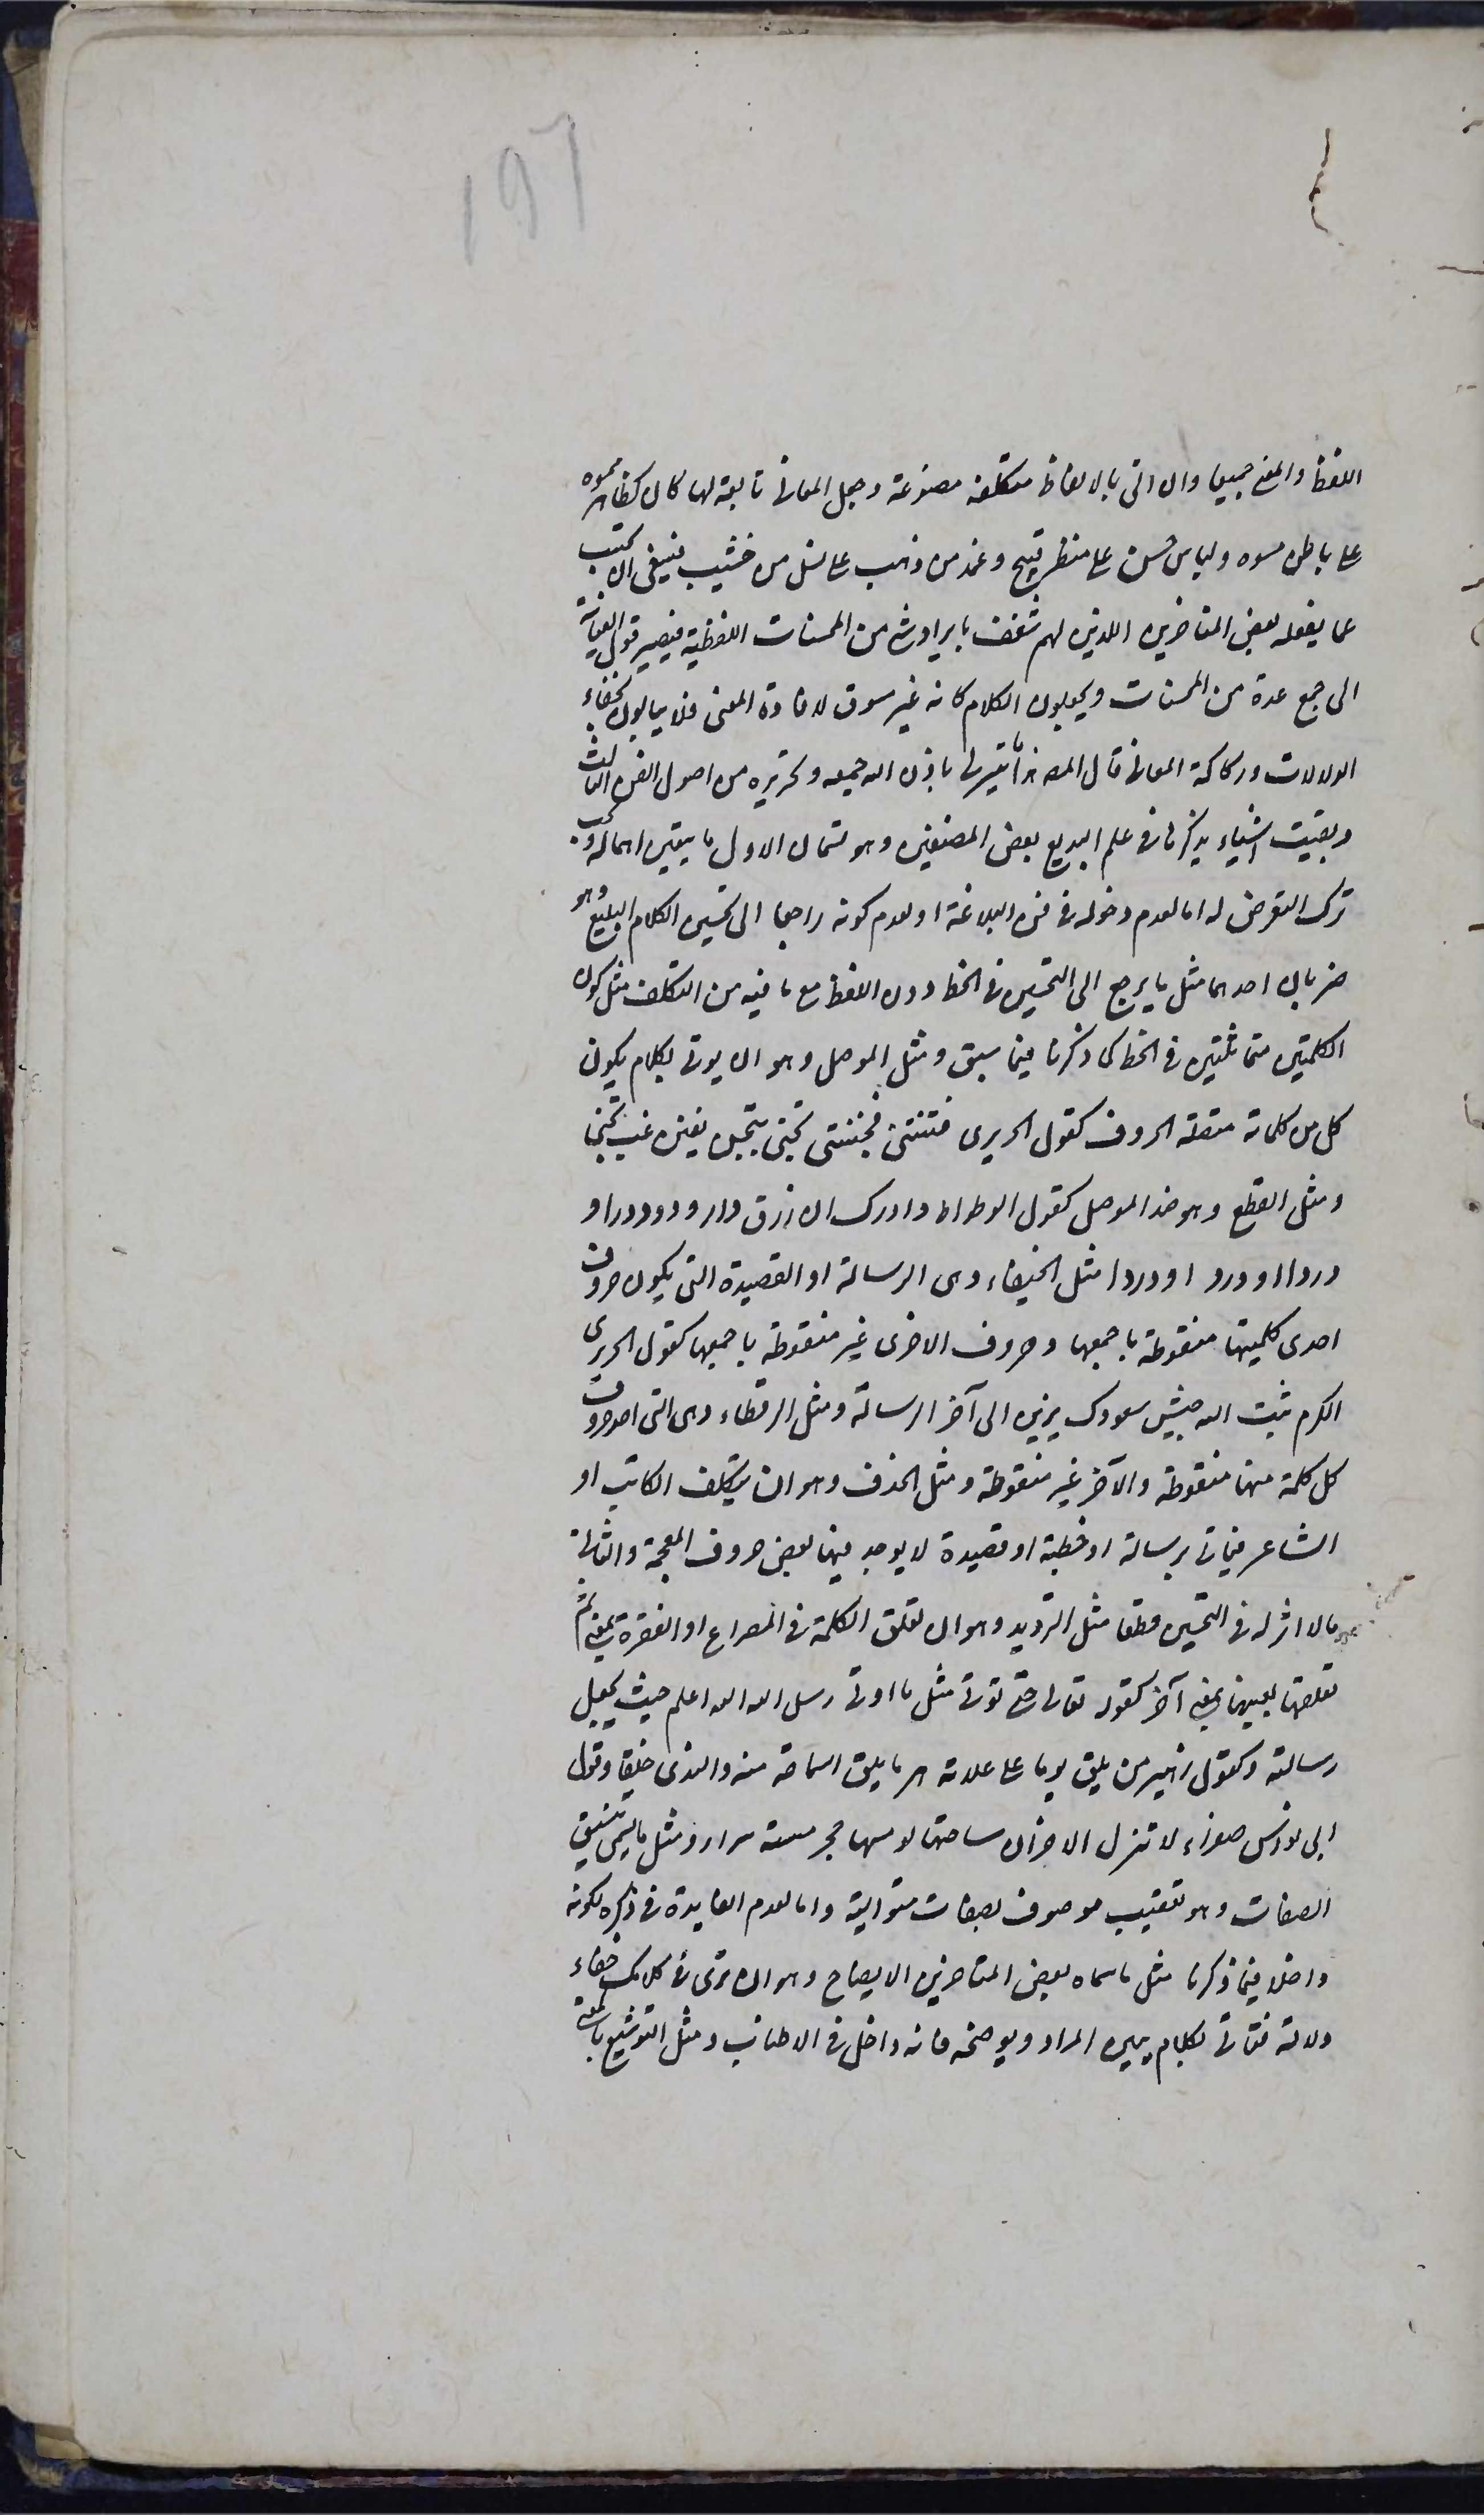 ١٩٦
اللفظ والمعنى جميعا وان اتى بالالفاظ متكلفة مصنوعة وجعل المعانى تابعة لها كان كظاهر مموه
على باطن مسوه ولباس حسن على منظر قبيح وغمد من ذهب على نصل من خشب فينبغى ان يجتنب
عما يفعله بعض المتاخرين اللذين لهم شغف بايراد شئ من المحسنات اللفظية فيصير قول الغاية
الى جمع عدة من المحسنات ويجعلون الكلام كانه غير مسوق لافادة المعنى فلا يبالون بخفاء
الدلالات وركاكة المعانى قال المصـ هذا ما تيسر لى باذن الله جمعه وتحريره من اصول الفن الثالث
وبقيت اشياء يذكرها فى علم البديع بعض المصنفين وهو قسمان الاول ما يتعين اهماله ويجب
ترك التعرض له اما لعدم دخوله فى فن البلاغة او لعدم كونه راجعا الى تحسين الكلام البليغ وهو
ضربان احدهما مثل ما يرجع الى التحسين فى الخط دون اللفظ مع ما فيه من التكلف مثل كون
الكلمتين متماثلتين فى الخط كما ذكرنا فيما سبق ومثل الموصل وهو ان يوتى بكلام يكون
كل من كلماته متصلة الحروف كقول الحريرى فتنتنى فجننتنى تجنى بتجن يفتن غب تجنى
ومثل القطع وهو ضد الموصل كقول الوطواط وادرك ان زرق دار ودود دراو
دردا او ورد او وردا مثل الخيفاء وهى الرسالة او القصيدة التى يكون حروف
احدى كلمتيها منقوطة باجمعها وحروف الاخرى غير منقوطة باجمعها كقول الحريرى
الكرم ثبت الله جيش سعودك يزين الى آخر الرسالة ومثل الرقطاء وهى التى احد حروف
كل كلمة منها منقوطة والآخر غير منقوطة ومثل الحذف وهو ان يتكلف الكاتب او
الشاعر فياتى برسالة او خطبة او قصيدة لا يوجد فيها بعض حروف المعجمة والثانى
ما لا اثر له فى التحسين قطعا مثل الترديد وهو ان تعلق الكلمة فى المصراع او الفقرة بمعنى ثم
تعلقها بعينها بمعنى آخر كقوله تعالى حتى نوتى مثل ما اوتى رسل الله الله اعلم حيث يجعل
رسالته وكقول زهير من يلق يوما على علاته هرما يلق السماحة منه والندى خلقا وقول
ابى نواس صفراء لا تنزل الاحزان ساحتها لو مسها حجر مسته سراء ومثل ما يسمى تنسيق
الصفات وهو تعقيب موصوف بصفات متوالية واما لعدم الفايدة فى ذكره لكونه
داخلا فيما ذكرنا مثل ما سماه بعض المتاخرين الايضاح وهو ان ترى فى كلامك خفاء
دلالة فتاتى بكلام يبين المراد ويوضحه فانه داخل فى الاطناب ومثل التوشيع بالمعنى